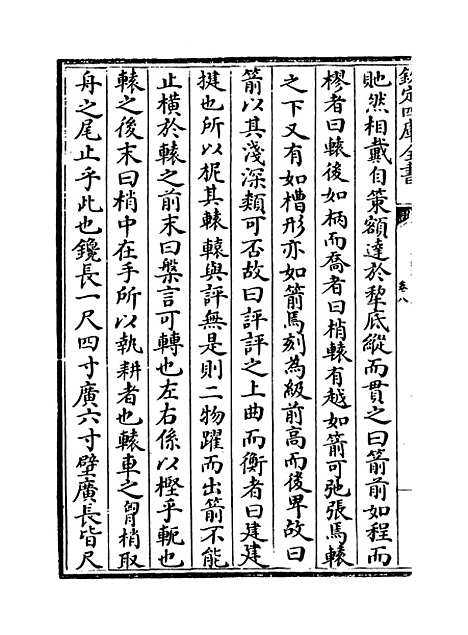 欽定四庫全書
卷八
貤然相戴自策額達於犂底縱而貫之曰箭前如程而
樛者曰轅後如柄而喬者曰梢轅有越如箭可弛張焉轅
之下又有如槽形亦如箭焉刻為級前高而後卑故曰
箭以其淺深類可否故曰評評之上曲而衡者曰建建
揵也所以柅其轅轅與評無是則二物躍而出箭不能
止橫於轅之前末曰槃言可轉也左右係以樫乎軶也
轅之後末曰梢中在手所以執耕者也轅車之胷梢取
舟之尾止乎此也鑱長一尺四寸廣六寸壁廣長皆尺